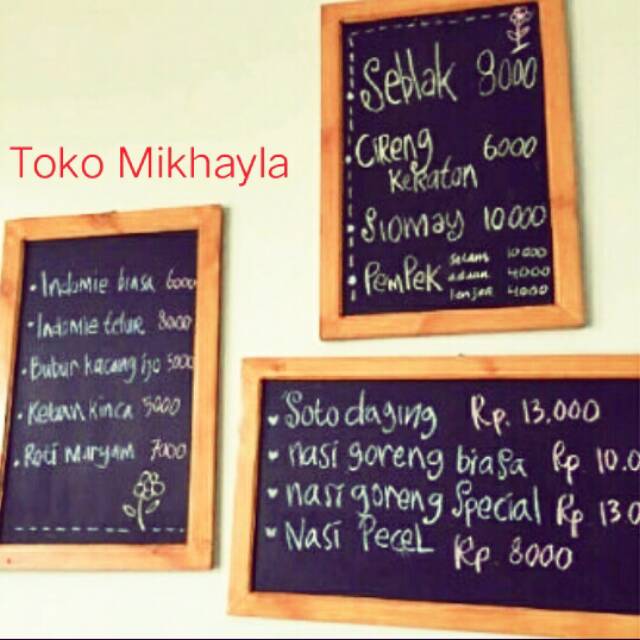 Toko Mikhayla
Seblak 8000
Cireng 6000
Keraton
Siomay 10000
Pempek selam 10000
adaan 4000
lenjer 4000
Indomie biasa 6000
Indomie telur 8000
Bubur kacang ijo 5000
Ketan kinca 5000
Roti Maryam 7000
Soto daging Rp. 13.000
nasi goreng biasa Rp 10.0
nasi goreng Special Rp 13.0
Nasi Pecel Rp 8000